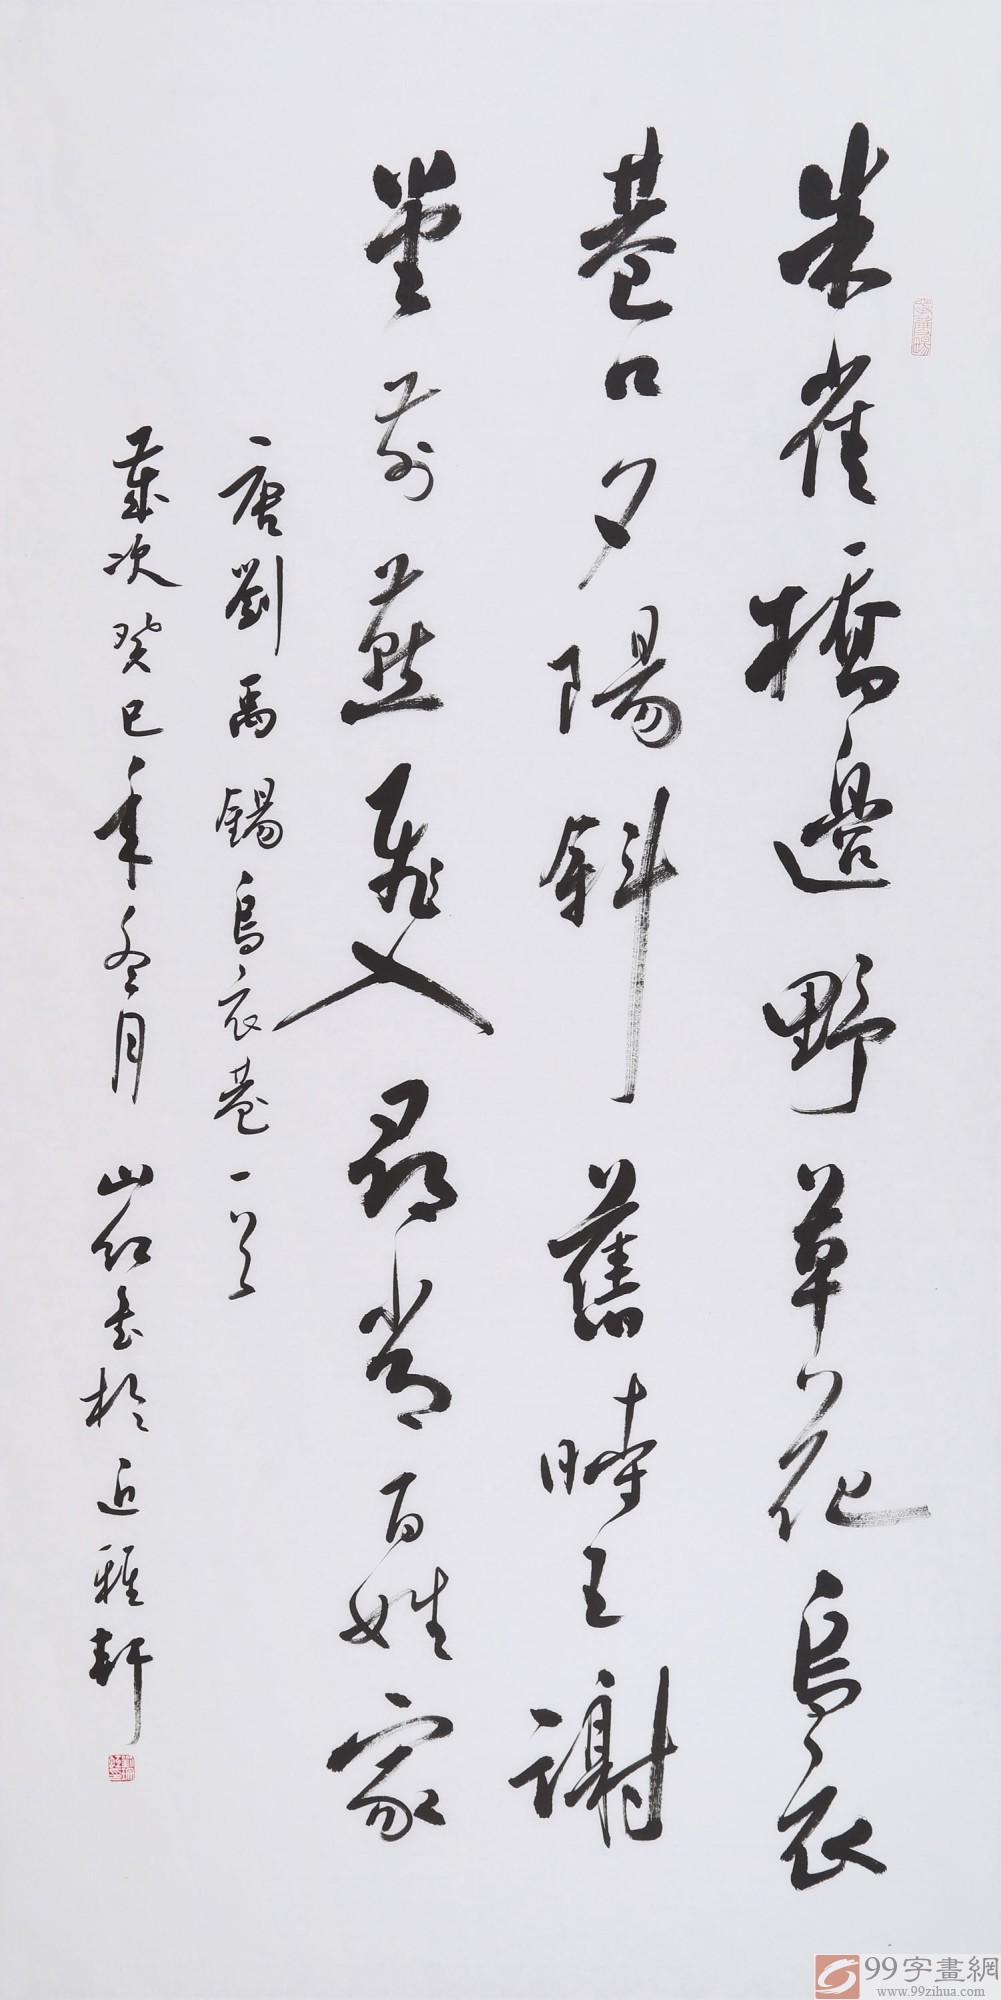 朱雀橋邊野草花烏衣
巷口夕陽斜舊時王謝
堂前燕飛入尋常百姓家
唐劉禹錫烏衣巷一首
歲次癸巳年冬月山紅書於近雅軒
99字畫網
www.99zihua.com